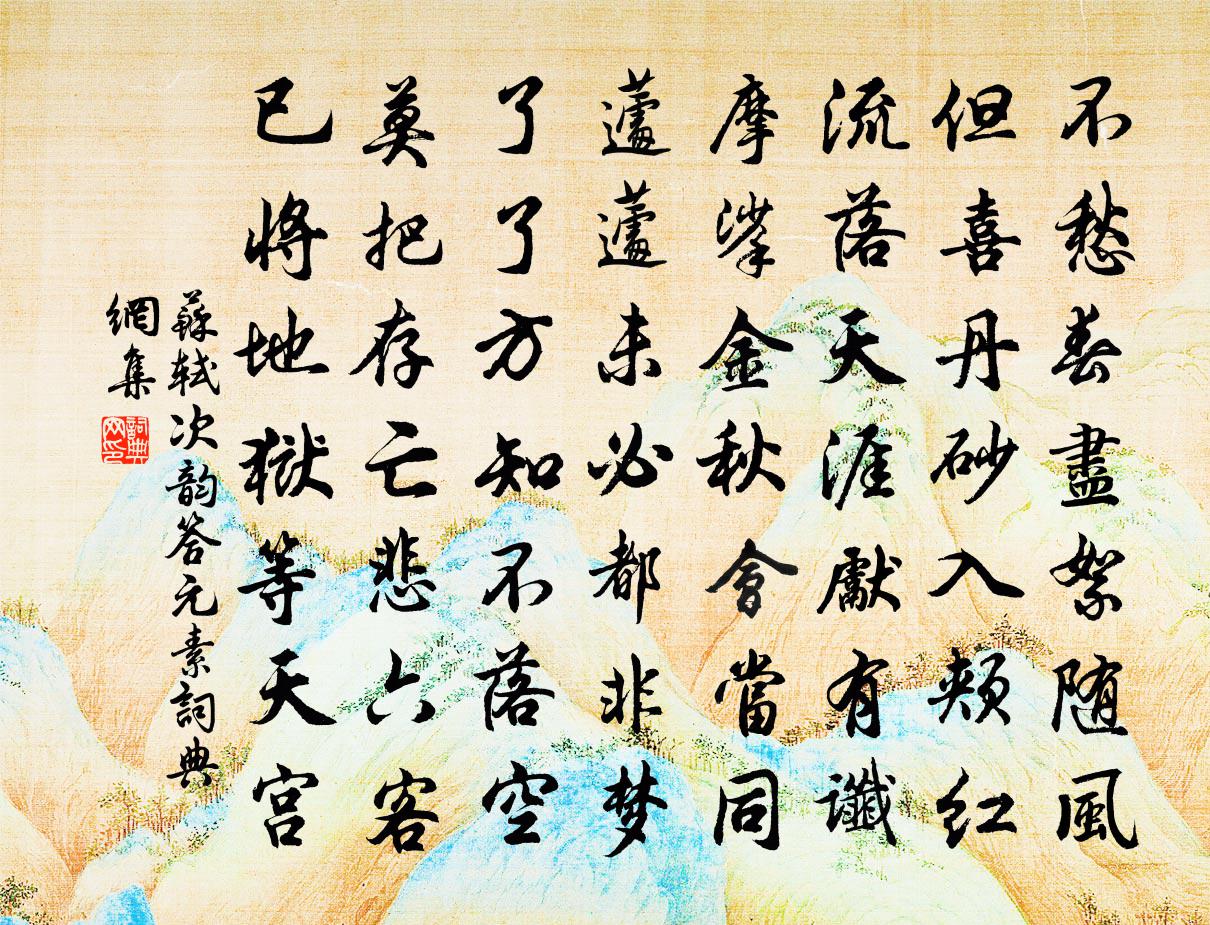 不愁春盡絮随風
但喜丹砂入頰红
流落天涯獻有讖
摩挲金秋會當同
蘧蘧未必都非梦
了了方知不落空
莫把存亡悲六客
已將地獄等天宫
蘇轼次韵答元素詞典
網集
詞典
网印